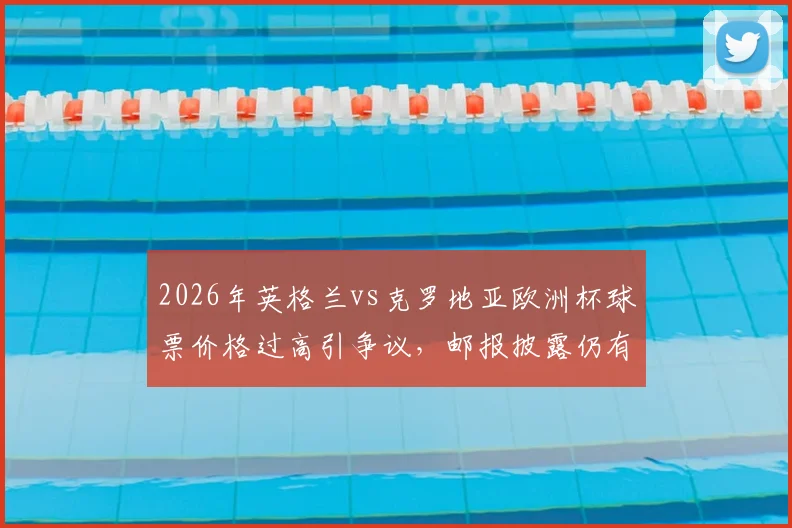 2026年英格兰vs克罗地亚欧洲杯球
票价格过高引争议，邮报披露仍有